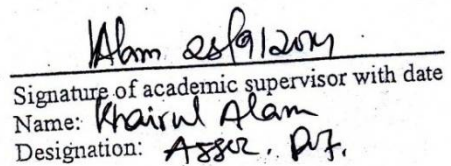 Alam 28/9/2014
Signature of academic supervisor with date
Name: Khairul Alam
Designation: Assoc. Prof.